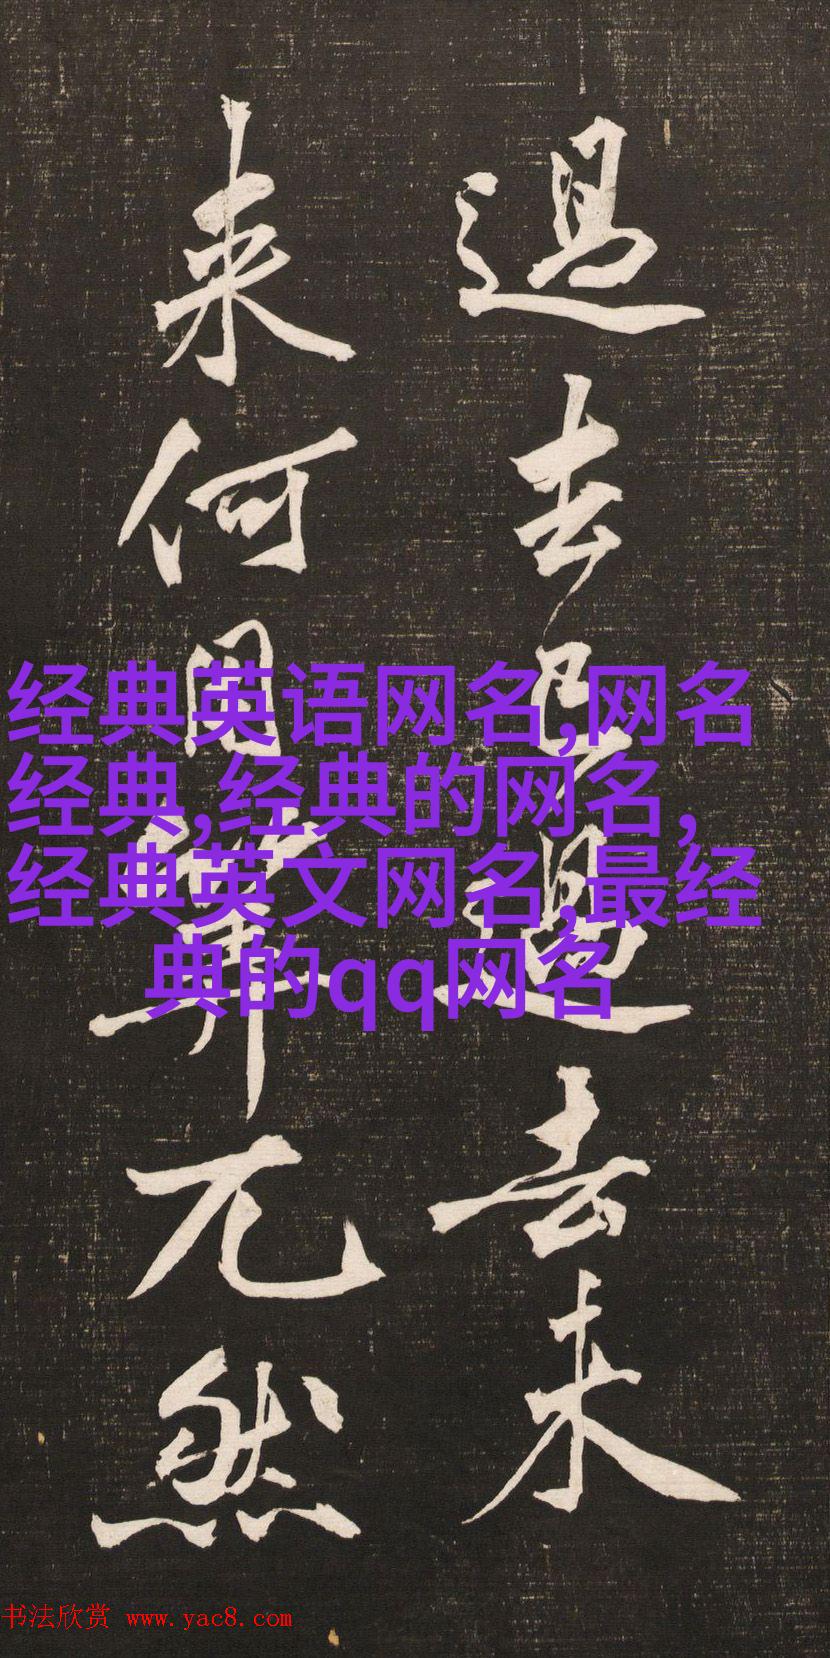 過去已過去未
来何用筭兀然
经典英语网名,网名
经典,经典的网名,
经典英文网名,最经
典的qq网名
书法欣赏 www.yac8.com